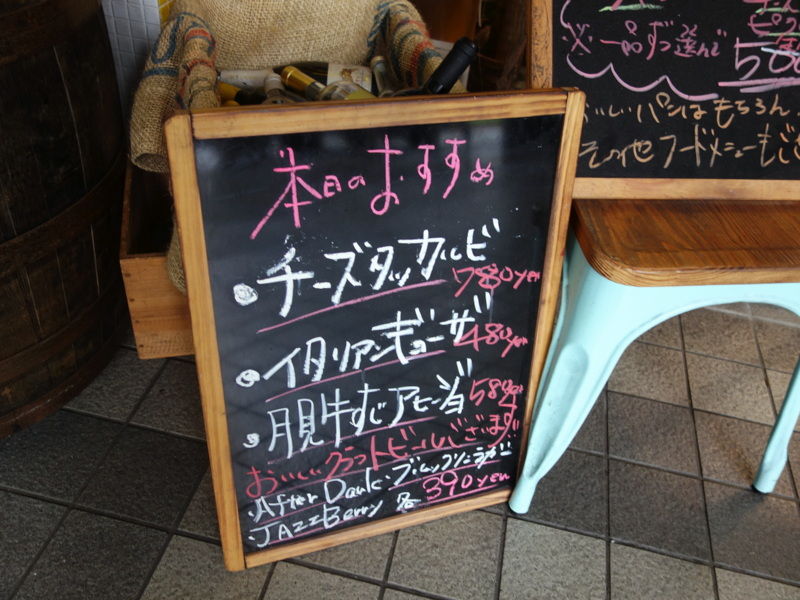 本日のおすすめ
・チーズタッカルビ 780yen
・イタリアンギョーザ 480ye
・月見牛すじアヒージョ 580
おいしいクラフトビールございます
・After Dark・ブルックリンラガー
・JAZZBerry 各390yen
※一品ずつ選んで
500
おいしいパンはもちろん
その他フードメニューもござ